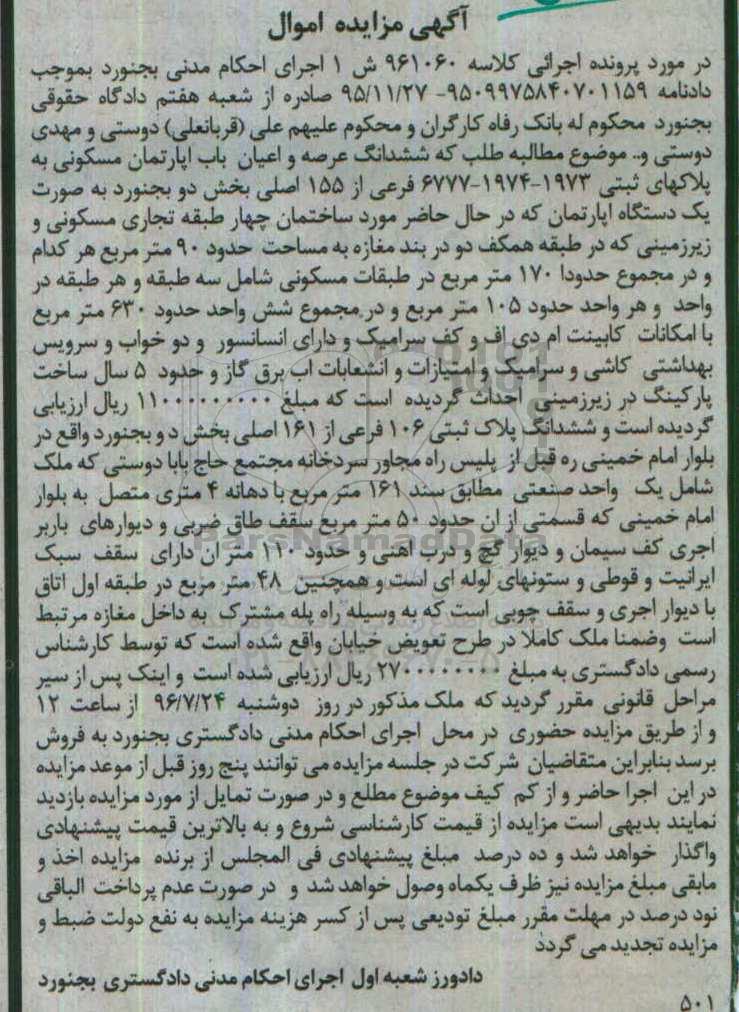 آگهی مزایده اموال
در مورد پرونده اجرائی کلاسه ۹۶۱۰۶۰ ش ۱ اجرای احکام مدنی بجنورد بموجب
دادنامه ۹۵۰۹۹۷۵۸۴۰۷۰۱۱۵۹- ۹۵/۱۱/۲۷ صادره از شعبه هفتم دادگاه حقوقی
بجنورد محکوم له بانک رفاه کارگران و محکوم علیهم علی (قربانعلی) دوستی و مهدی
دوستی و.. موضوع مطالبه طلب که ششدانگ عرصه و اعیان باب اپارتمان مسکونی به
پلاکهای ثبتی ۱۹۷۳-۱۹۷۴-۶۷۷۷ فرعی از ۱۵۵ اصلی بخش دو بجنورد به صورت
یک دستگاه اپارتمان که در حال حاضر مورد ساختمان چهار طبقه تجاری مسکونی و
زیرزمینی که در طبقه همکف دو در بند مغازه به مساحت حدود ۹۰ متر مربع هر کدام
و در مجموع حدودا ۱۷۰ متر مربع در طبقات مسکونی شامل سه طبقه و هر طبقه در
واحد و هر واحد حدود ۱۰۵ متر مربع و در مجموع شش واحد حدود ۶۳۰ متر مربع
با امکانات کابینت ام دی اف و کف سرامیک و دارای انسانسور و دو خواب و سرویس
بهداشتی کاشی و سرامیک و امتیازات و انشعابات اب برق گاز و حدود ۵ سال ساخت
پارکینگ در زیرزمینی احداث گردیده است که مبلغ ۱۱۰۰۰۰۰۰۰۰۰ ریال ارزیابی
گردیده است و ششدانگ پلاک ثبتی ۱۰۶ فرعی از ۱۶۱ اصلی بخش دو بجنورد واقع در
بلوار امام خمینی ره قبل از پلیس راه مجاور سردخانه مجتمع حاج بابا دوستی که ملک
شامل یک واحد صنعتی مطابق سند ۱۶۱ متر مربع با دهانه ۴ متری متصل به بلوار
امام خمینی که قسمتی از ان حدود ۵۰ متر مربع سقف طاق ضربی و دیوارهای باربر
اجری کف سیمان و دیوار گچ و درب اهنی و حدود ۱۱۰ متر ان دارای سقف سبک
ایرانیت و قوطی و ستونهای لوله ای است و همچنین ۴۸ متر مربع در طبقه اول اتاق
با دیوار اجری و سقف چوبی است که به وسیله راه پله مشترک به داخل مغازه مرتبط
است وضمنا ملک کاملا در طرح تعویض خیابان واقع شده است که توسط کارشناس
رسمی دادگستری به مبلغ ۲۷۰۰۰۰۰۰۰۰ ریال ارزیابی شده است و اینک پس از سیر
مراحل قانونی مقرر گردید که ملک مذکور در روز دوشنبه ۹۶/۷/۲۴ از ساعت ۱۲
و از طریق مزایده حضوری در محل اجرای احکام مدنی دادگستری بجنورد به فروش
برسد بنابراین متقاضیان شرکت در جلسه مزایده می توانند پنج روز قبل از موعد مزایده
در این اجرا حاضر و از کم کیف موضوع مطلع و در صورت تمایل از مورد مزایده بازدید
نمایند بدیهی است مزایده از قیمت کارشناسی شروع و به بالاترین قیمت پیشنهادی
واگذار خواهد شد و ده درصد مبلغ پیشنهادی فی المجلس از برنده مزایده اخذ و
مابقی مبلغ مزایده نیز ظرف یکماه وصول خواهد شد و در صورت عدم پرداخت الباقی
نود درصد در مهلت مقرر مبلغ تودیعی پس از کسر هزینه مزایده به نفع دولت ضبط و
مزایده تجدید می گردد
دادورز شعبه اول اجرای احکام مدنی دادگستری بجنورد
۵۰۱
ParsNamadData